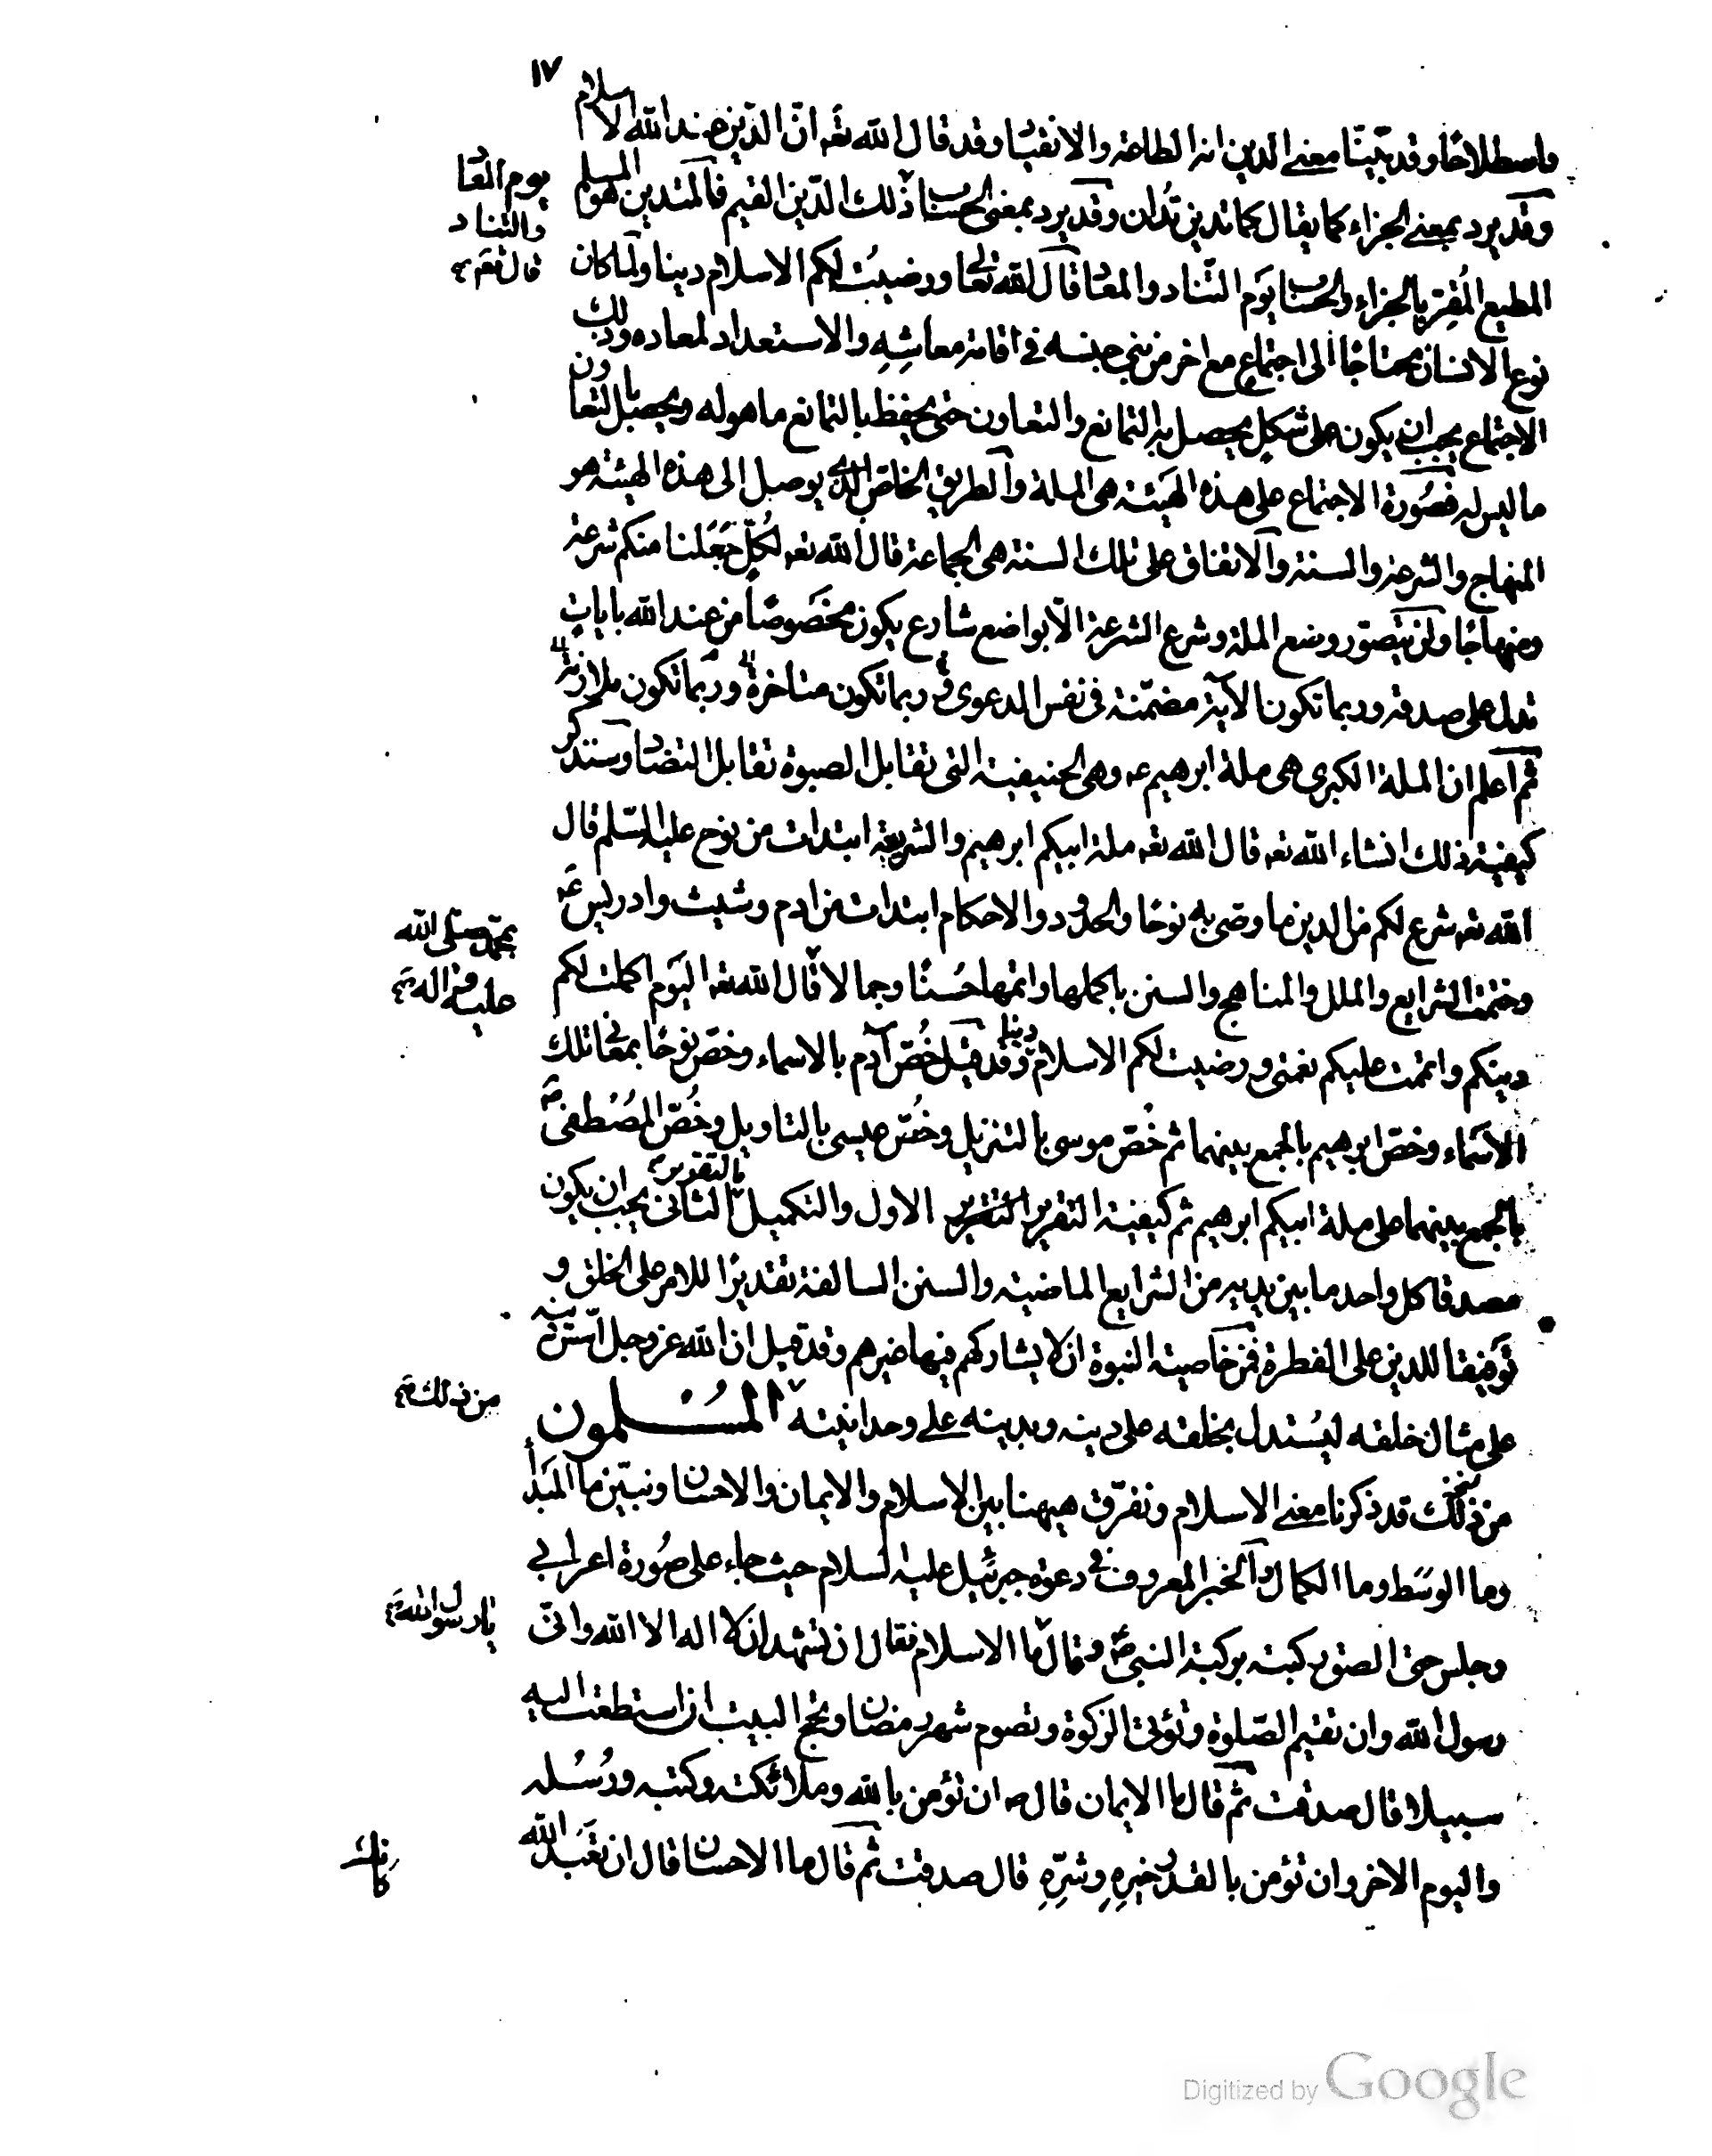 ١٧
واصطلاحًا وقد بيّنّا معنى الدين انه الطاعة والانقياد وقد قال الله تعه انّ الدّين عند الله الاسلام
وقد يرد بمعنى الجزاء كما يقال كما تدين تُدان وقد يرد بمعنى الحساب ذلك الدّين القيم فالمتدين هو المسلم
المطيع المُقِرّ بالجزاء والحساب يوم التّناد والمعاد قال الله تعالى ورضيت لكم الاسلام دينا ولما كان
يوم المعاد
والتناد
قال تعم
نوع الانسان محتاجًا الى اجتماع مع اخر من بني جنسه في اقامة معاشِهِ والاستعداد لمعاده وذلك
الاجتماع يجب ان يكون على شكلٍ يحصل به التمانع والتعاون حتى يحفظ بالتمانع ما هو له ويحصل بالتعاون
ما ليس له فصُورة الاجتماع على هذه الهَيئة هى الملة والطريق الخاصّ الذى يوصل الى هذه الهيئة هو
المنهاج والشرعة والسنة والاتفاق على تلك السنة هى الجماعة قال الله تعه لكُلٍّ جَعَلنا منكم شرعة
ومنهاجًا ولن يتصوّر وضع الملة وشرع الشرعة الّا بواضع شارع يكون مخصَوصًا من عند الله باياتٍ
تدل على صدقه وربما تكون الآية مضمّنة فى نفس الدعوى وربما تكون متاخرة وربّما تكون ملازمة
ثم اعلم ان الملة الكبرى هى ملة ابرهيم عه وهى الحنيفية التى تقابل الصبوة تقابل التضاد وسنذكر
كيفية ذلك انشاء الله تعه قال الله تعه ملة ابيكم ابرهيم والشريعة ابتدات من نوح عليه السّلم قال
الله تعه شرع لكم من الدين ما وصّى به نوحًا والحدود والاحكام ابتدات من ادم وشيث وادريس عَه
وختمت الشرايع والملل والمناهج والسنن باكملها واتمها حُسنًا وجمالا قال الله تعه اليَوم اكملت لكم
بمحمد صلى الله
عليه وآله
دينكم واتممت عليكم نعمتى ورضيت لكم الاسلام دينا وقد قيل خُصّ آدم بالاسماء وخصّ نوحًا بمعانى تلك
الاسَماء وخصّ ابرهيم بالجمع بينهما ثم خُصّ موسى بالتنزيل وخُصّ عيسى بالتاويل وخُصّ المصُطفى صَ
بالجمع بينهما على ملة ابيكم ابرهيم ثم كيفية التقرير الاول والتكميل بالتقرير الثانى يجب ان يكون
مصدقا كل واحد ما بين يديه من الشرايع الماضية والسنن السالفة تقديرًا للامر على الخلق و
توفيقا للدين على الفطرة فمن خاصية النبوة ان لا يشاركهم فيها غيرهم وقد قيل ان الله عز وجل اسّس دينه
على مثال خلقه ليُستدل بخلقه على دينه وبدينه على وحدانيته المُسْلمون
من ذلك
من ذلك قد ذكرنا معنى الاسلام ونفرّق هيهنا بين الاسلام والايمان والاحسان ونبيّن ما المَبدأ
وما الوسَط وما الكمال والخبر المعروف فى دعوة جبرئيل عليه السلام حيث جاء على صُورة اعرابى
وجلس حتى الصق ركبته بركبة النبىّ صَ وقال ما الاسلام فقال ان تشهد ان لا اله الا الله وانّى
يا رسول الله
رسول الله وان تقيم الصّلوة وتؤتى الزكوة وتصوم شهر رمضان وتحج البيت ان استطعت اليه
سبيلا قال صدقت ثم قال ما الايمان قال صه ان تؤمن بالله وملائكته وكتبه ورُسُله
واليوم الاخر وان تؤمن بالقدر خيرِهِ وشرِّهِ قال صدقت ثم قال ما الاحسان قال ان تعَبُد الله
كانك
Digitized by Google